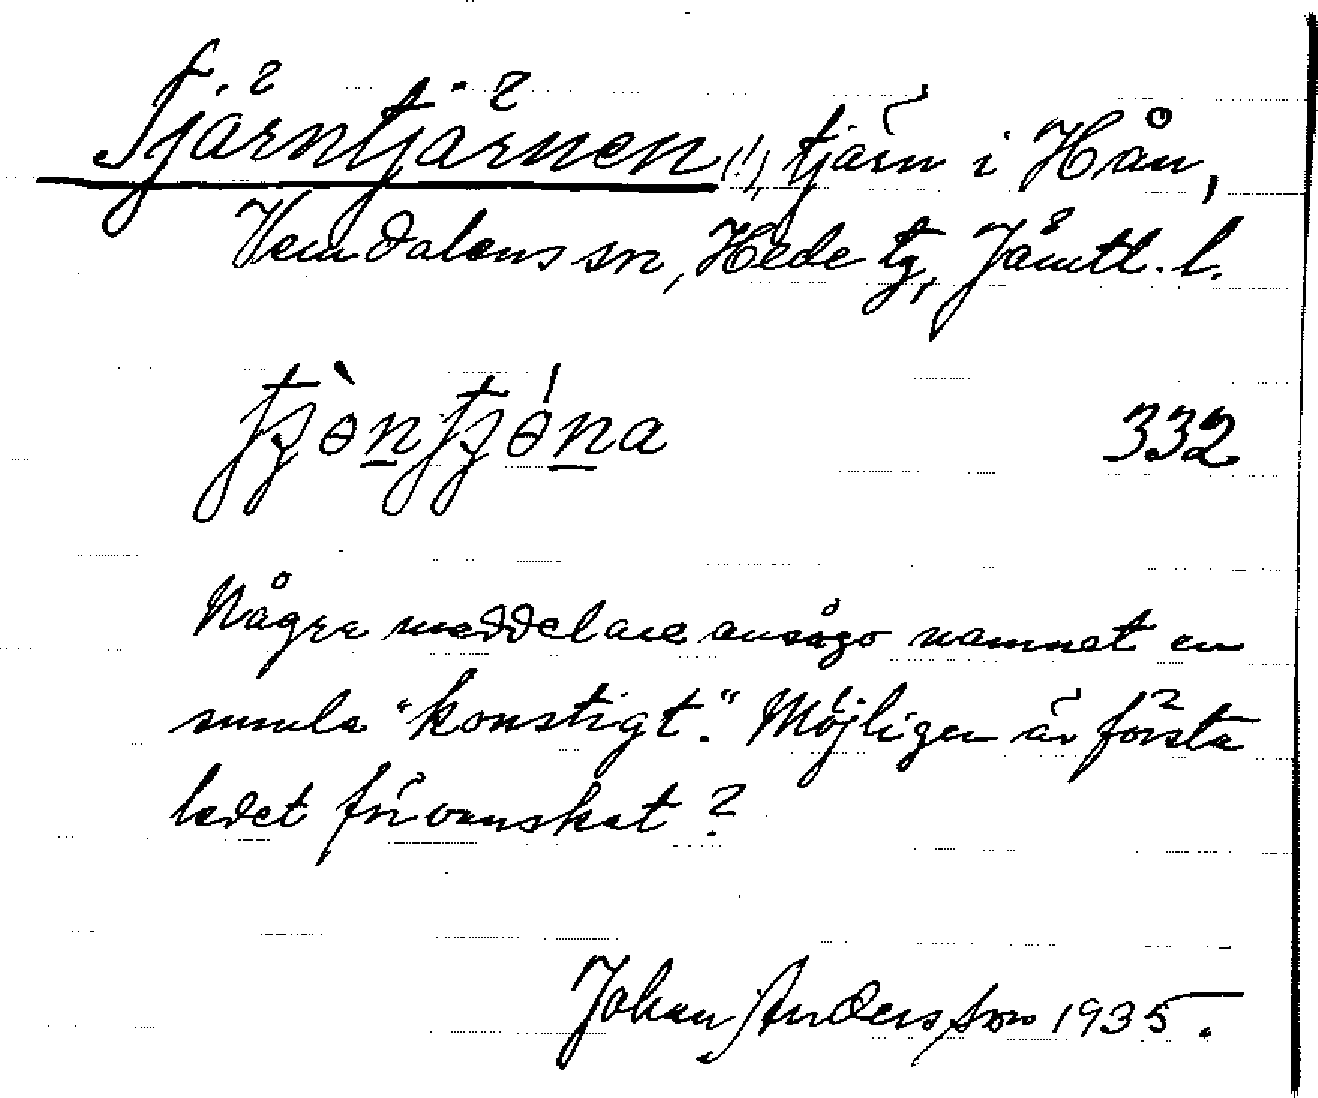 Tjärntjärnen (!), tjärn i Hån,
Vemdalens sn, Hede tg, Jämtl. l.
tjòntjǿna 332
Några meddelare ansågo namnet en
smula "konstigt". Möjligen är första
ledet förvanskat?
Johan Andersson 1935.